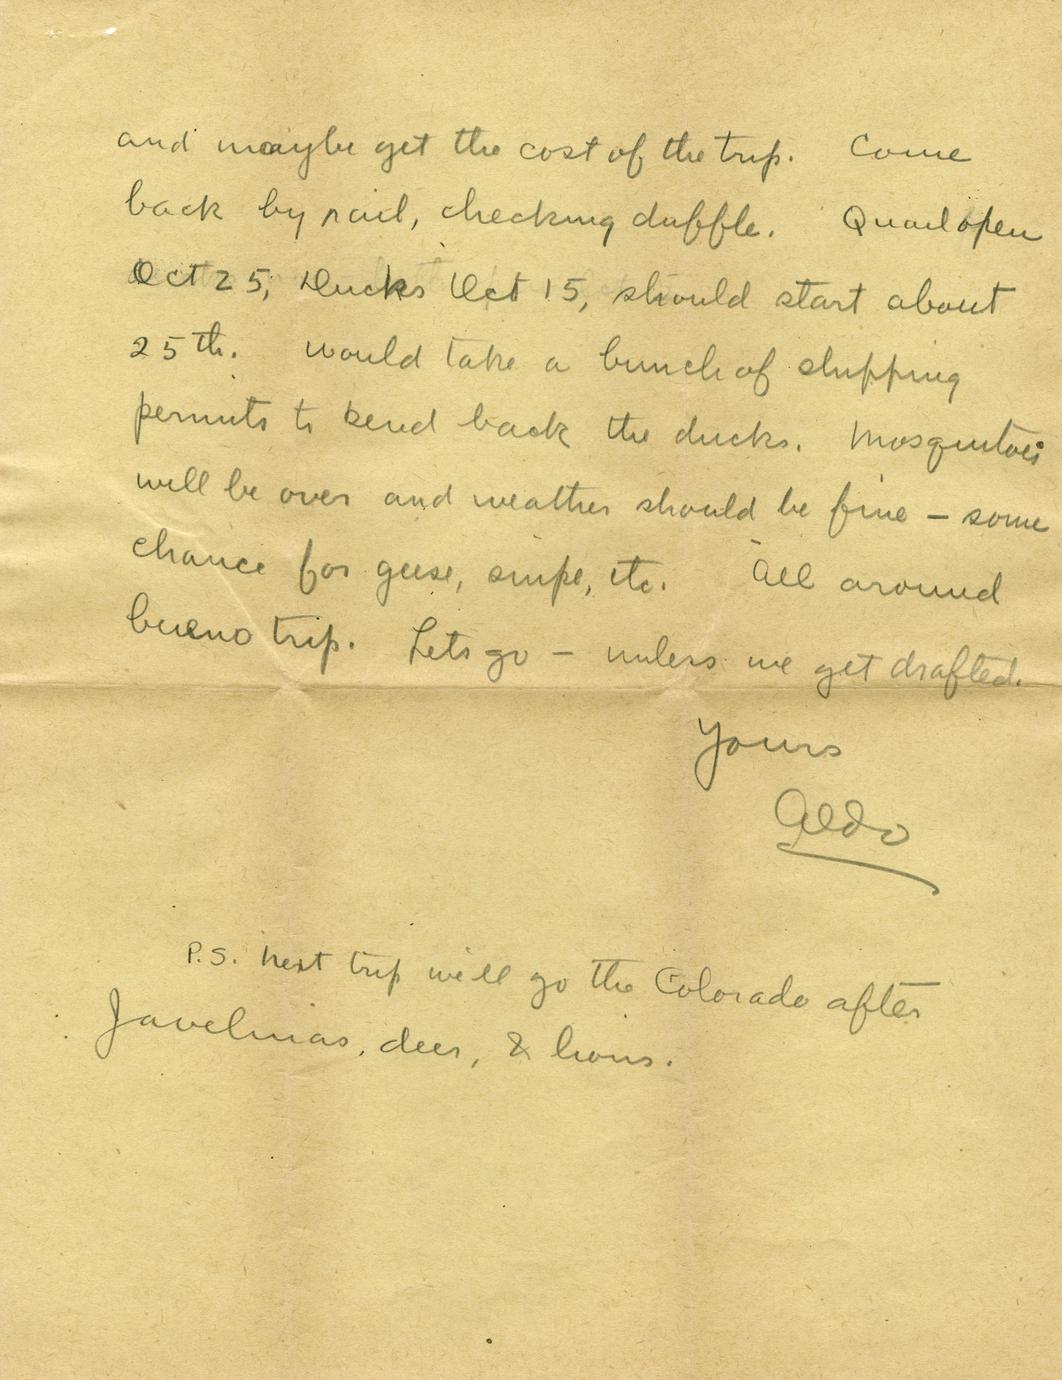 and maybe get the cost of the trip. Come
back by rail, checking duffle. Quail open
Oct 25, Ducks Oct 15, should start about
25th. Would take a bunch of shipping
permits to send back the ducks. Mosquitoes
will be over and weather should be fine – some
chance for geese, snipe, etc. All around
bueno trip. Lets go – unless we get drafted.
Yours
Aldo
P.S. Next trip we'll go the Colorado after
Javelinas, deer, & lions.